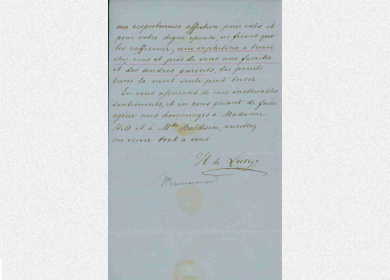 ma respectueuse affection pour vous et
pour votre digne épouse, ne feront que
les raffermir,
chez vous et près de vous une famille
et des tendres parents, des
que la mort seule peut briser.
En vous assurant de mes inaltérables
sentiments, et en vous priant de faire
agréer mes hommages à Madame
Hill et à Mlle Baldwin, veuillez
me croire tout à vous
H de